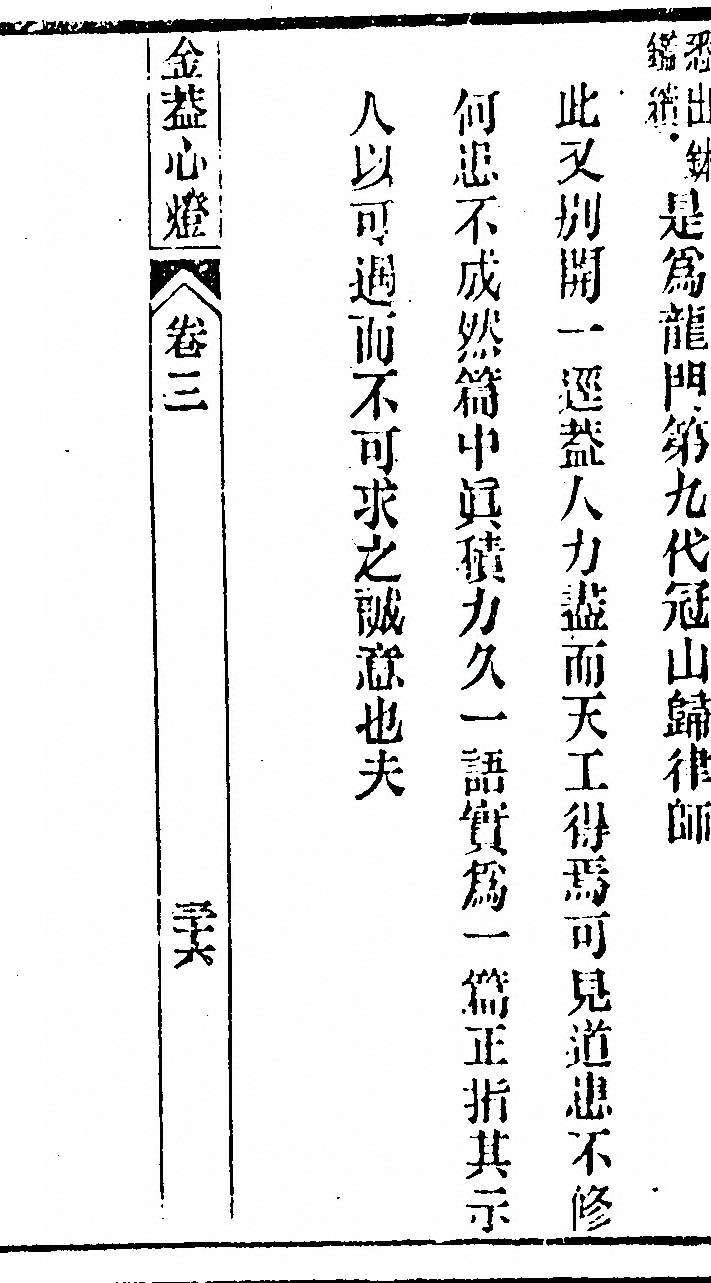 悉出鉢鑑續是爲龍門第九代冠山歸律師
此又別開一逕葢人力盡而天工得焉可見道患不修
何患不成然篇中眞積力久一語實爲一篇正指其示
人以可遇而不可求之誠意也夫
金葢心燈 卷三 三十六